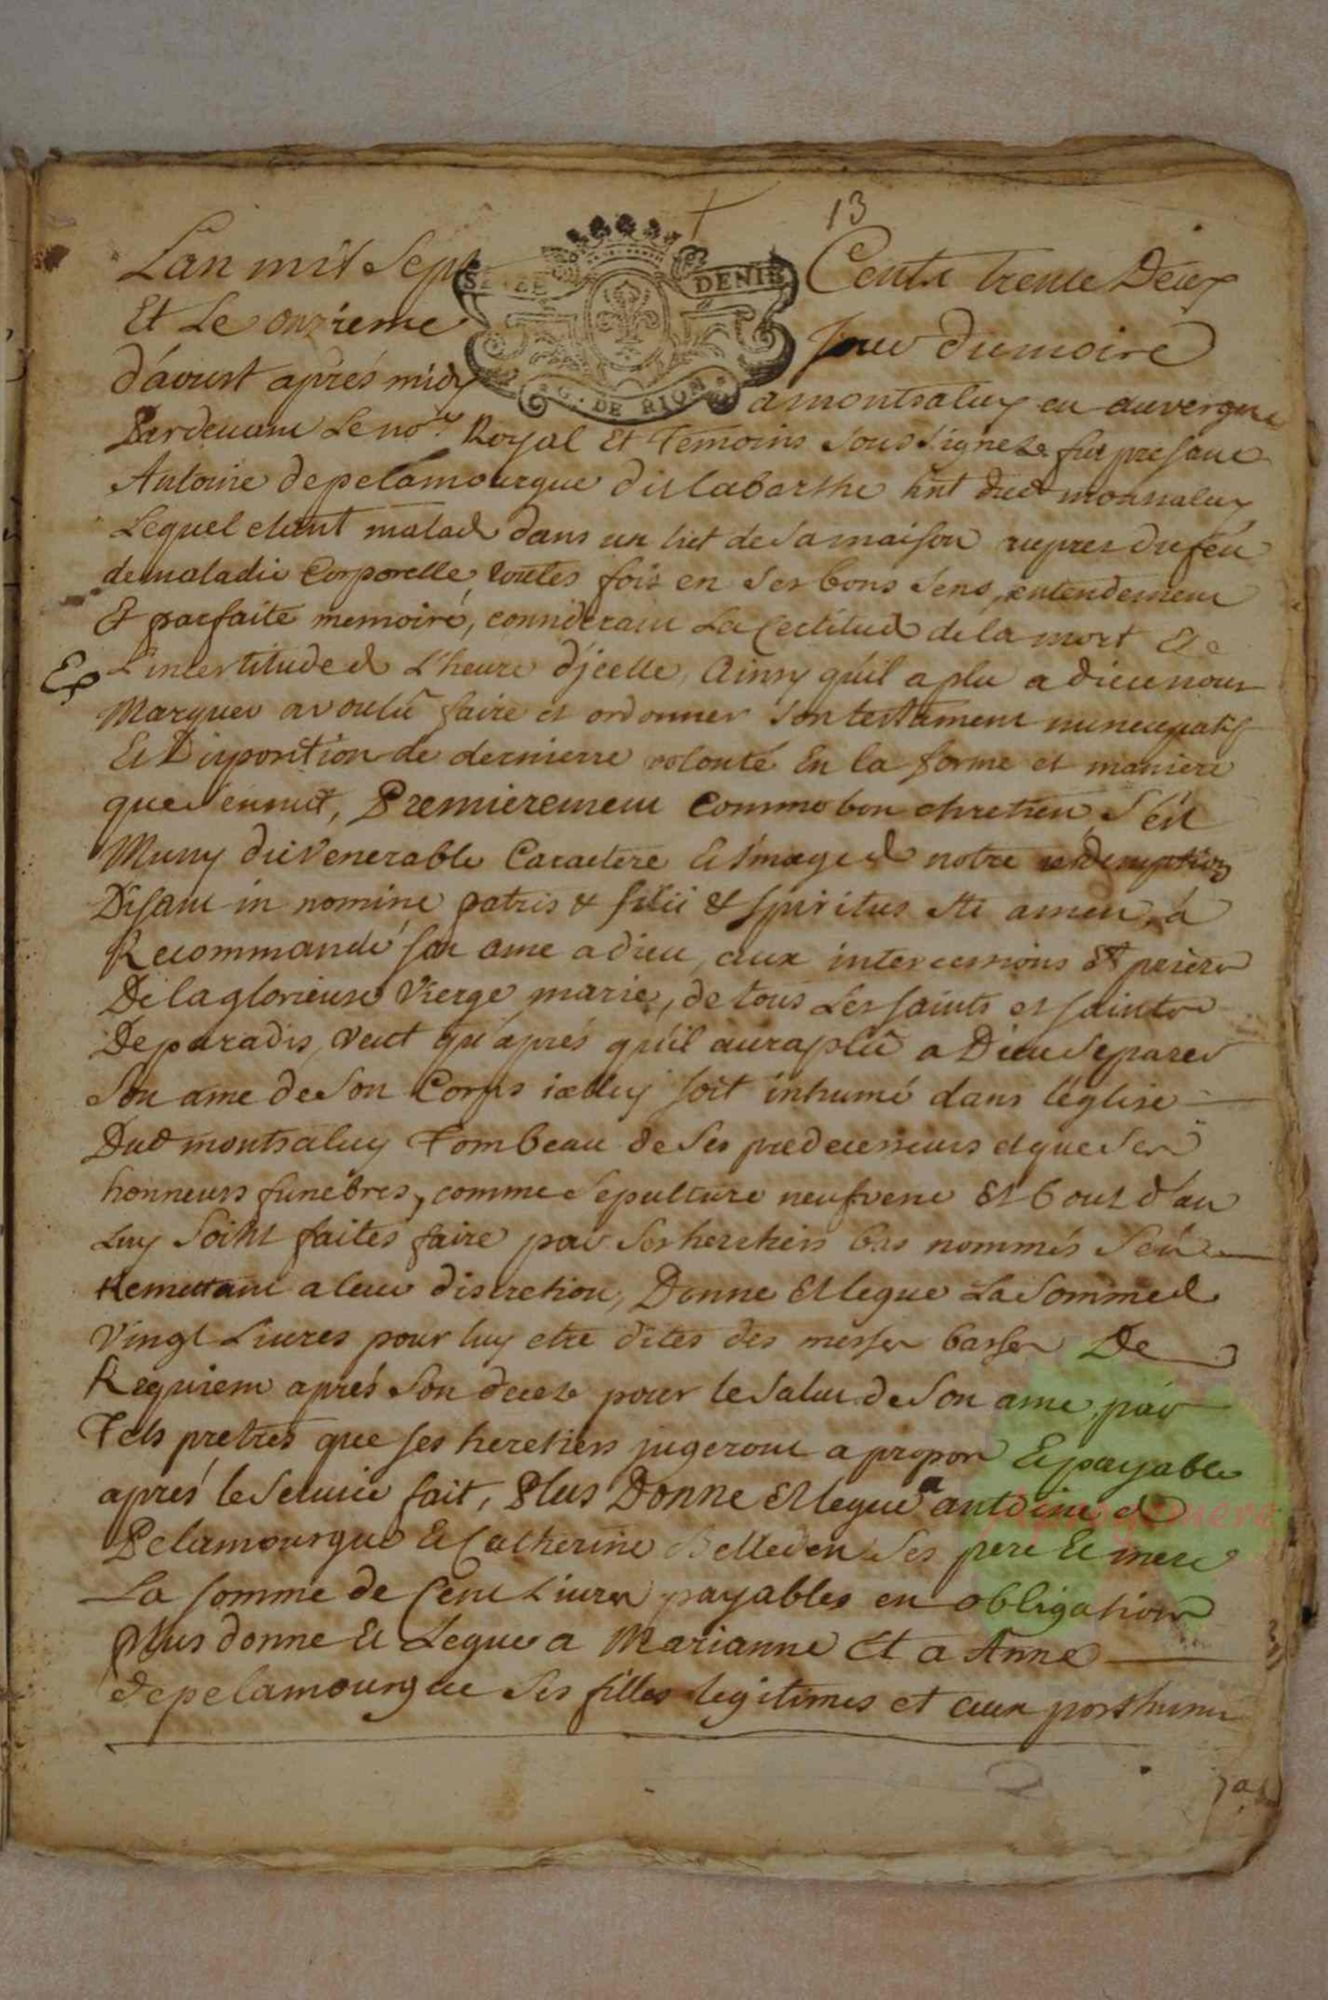 13
Lan mil Sept Cents trente Deux
Et Le onzieme Jour dumoire
d'avust aprés midy a montsaluy en auvergne
Pardevant Le no.re Royal Et Temoins Soussignez fut presant
Antoine depelamourgue dit labarthe hnt dud monsaluy
Lequel etant malade dans un lict de Sa maison aupres du feu
de maladie Corporelle, toutes fois en Ses bons Sens, entendement
Et parfaite memoire, considerant La Certitude de la mort Et
L'incertitude de L'heure d'jcelle, Ainsy qu'il a plu a dieu nous
Marquer a voulû faire et ordonner Son testament nuncupatif
Et Disposition de derniere volonté En la forme et maniere
que Sensuit, Premierement Comme bon chretien S'est
Muny du Venerable Caractere Et Image de notre redemption
Disant in nomine patris & filii & spiritus sti amen, a
Recommandé son ame a dieu, aux intercessions Et prieres
De la glorieuse Vierge marie, de tous Les saints et saintes
De paradis, Veut qu'aprés qu'il aura plû a Dieu Separer
Son ame de Son Corps icelluy soit inhumé dans l'eglise
Dud montsaluy Tombeau de Ses predecesseurs et que Ses
honneurs funebres, comme Sepulture neufvene Et bout d'an
Luy Soint faites faire par Ses heretiers bas nommés S'en
Remettant a leur discretion, Donne Et legue La Somme de
Vingt Livres pour luy etre dites des messes basses De
Requiem aprés Son decez pour le Salut de Son ame par
Tels pretres que ses heretiers jugeront a propos Et payable
aprés le Service fait, Plus Donne Et legue a antoine de
Pelamourgue Et Catherine Belleden Ses pere Et mere
La somme de Cent Livres payables en obligations
Plus donne Et Legue a Marianne Et a Anne
depelamourgue Ses filles legitimes et aux posthume